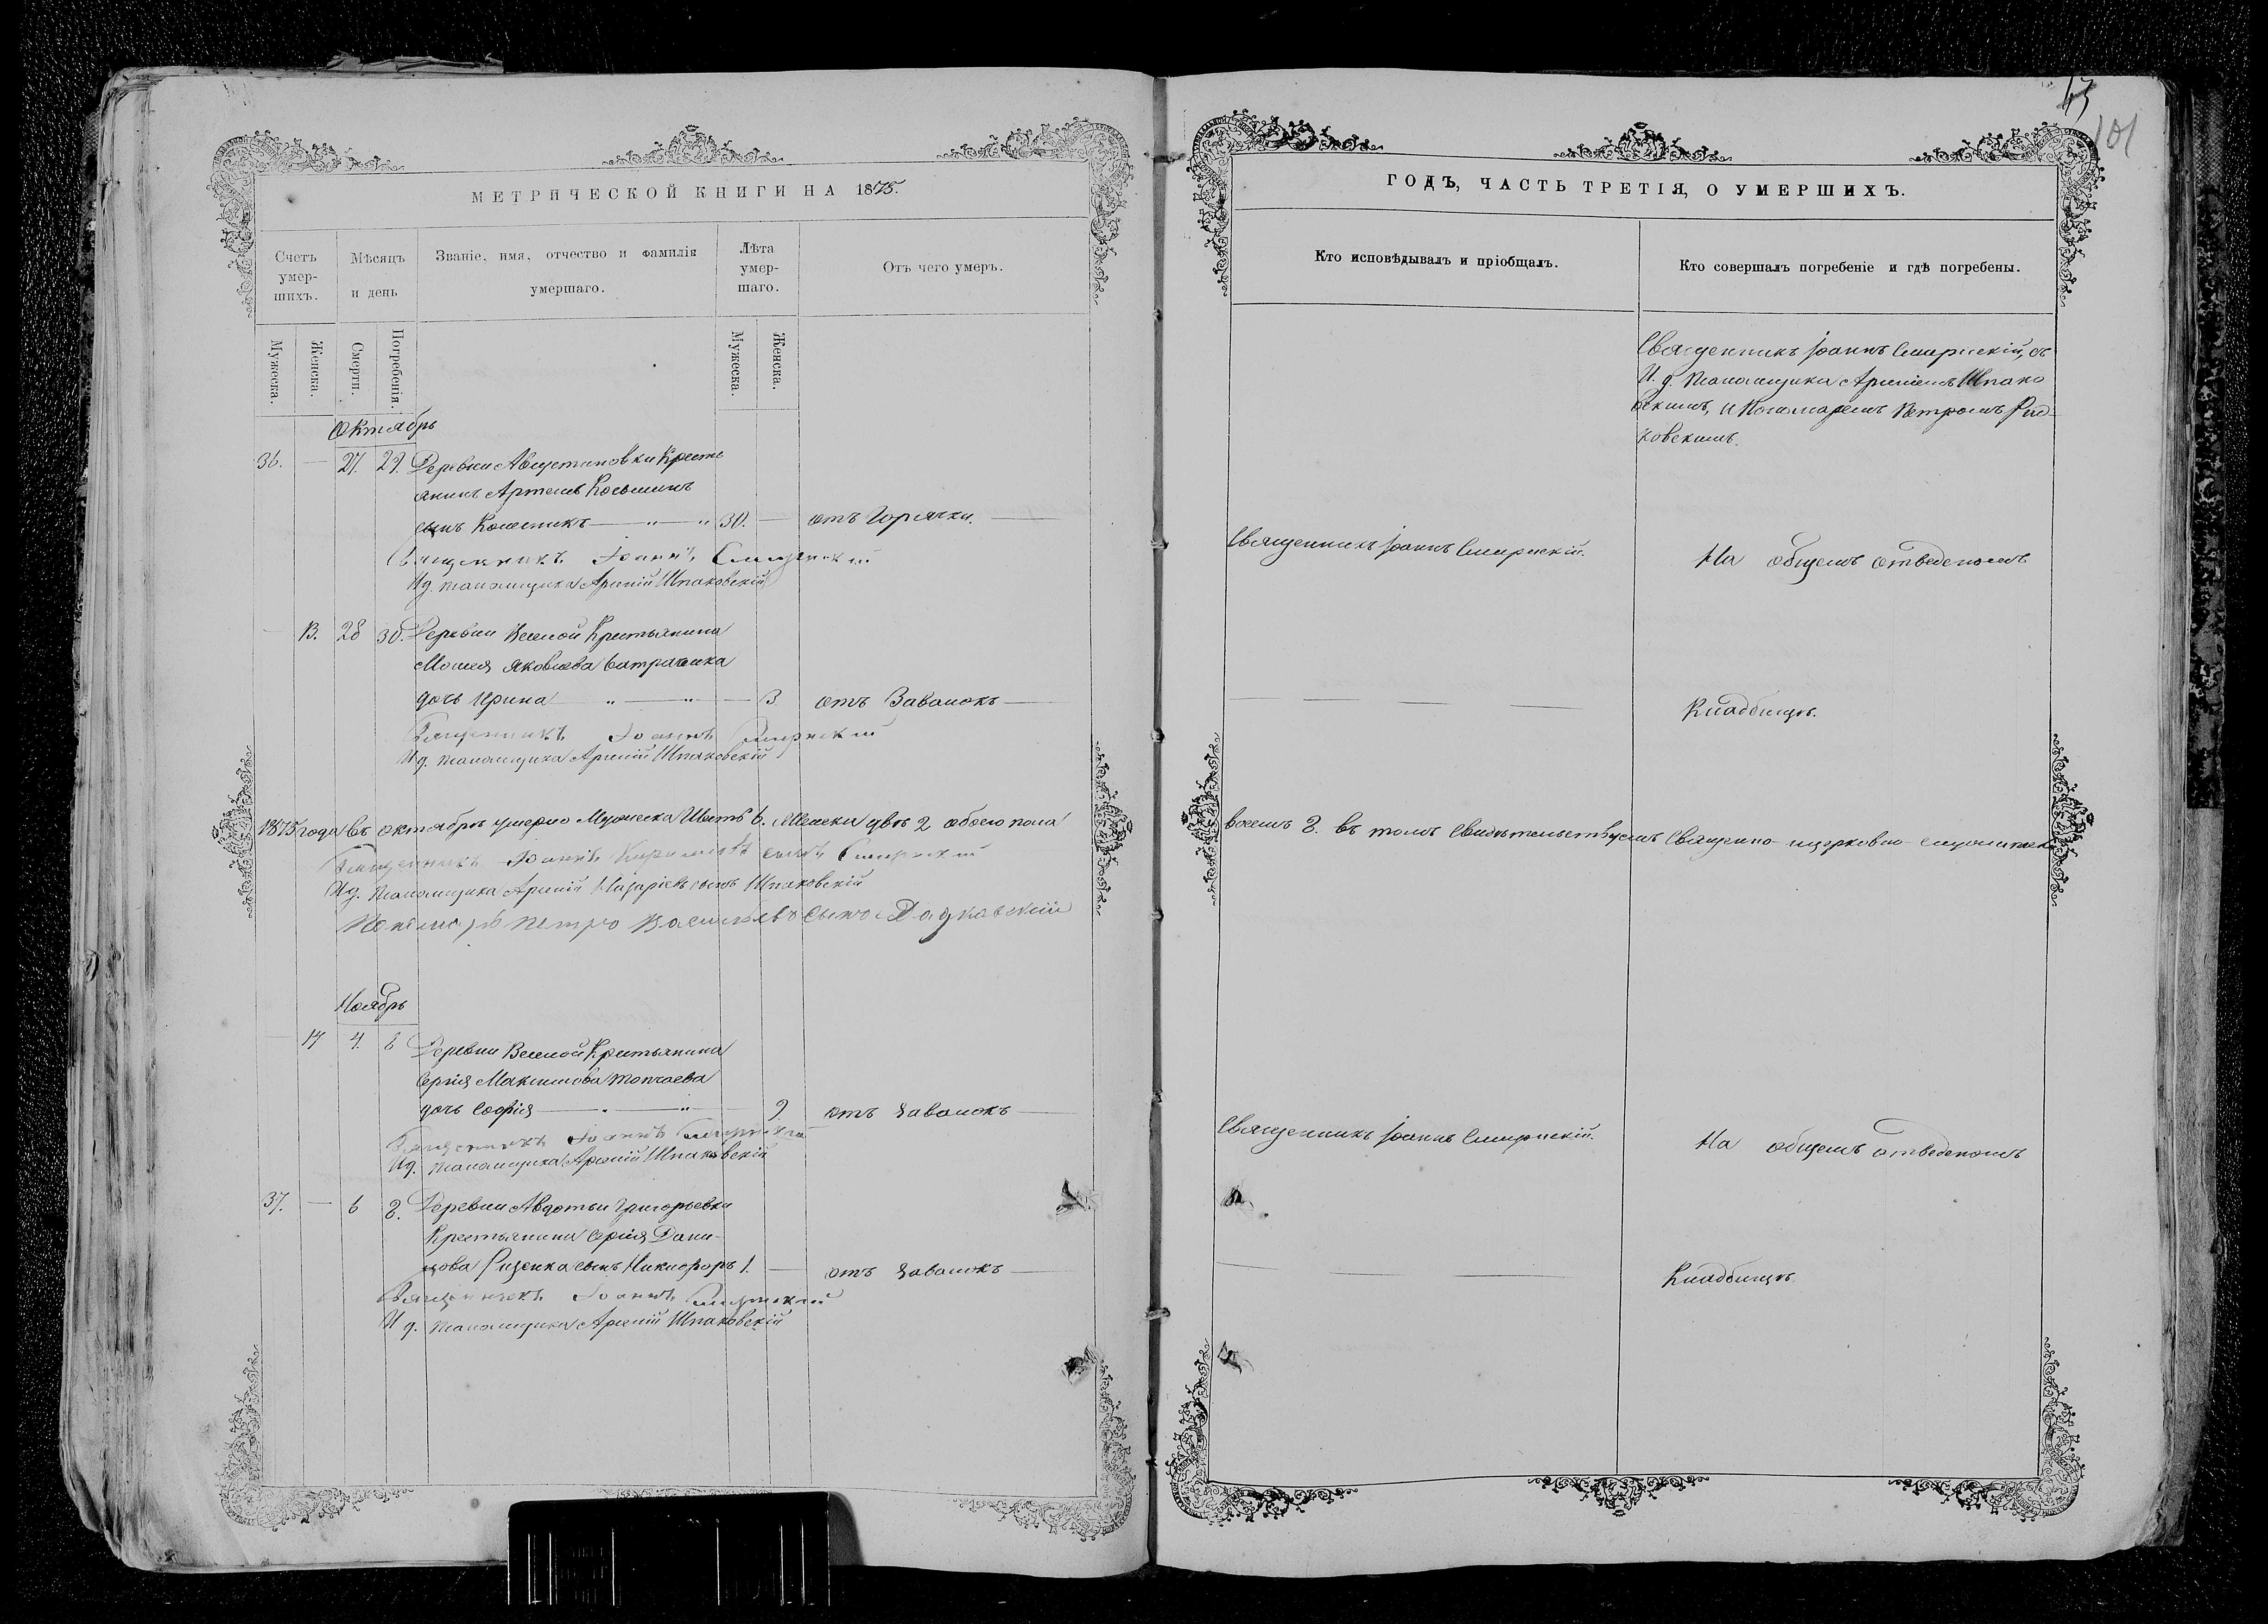 МЕТРИЧЕСКОЙ КНИГИ НА 1875.
Счетъ умер-шихъ.
Мѣсяцъ и день
Званіе, имя, отчество и фамилія умершаго.
Лѣта умер-шаго.
Отъ чего умеръ.
Мужеска.
Женска.
Смерти.
Погребенія.
Мужеска.
Женска.
Октябрь
36. — 27. 29. Деревни Августиновки Кресть
янинъ Артемъ Косьминъ
сынъ — „ — „ 30. — отъ Горячки.
Священникъ Іоаннъ Смирнскій
И д. псаломщика Арсеній Шпаковскій
— 13. 28 30. Деревни Веселой Крестьянина
Моисея Яковлева
дочь Ирина „ — „ — 3 отъ Завалокъ
Священникъ Іоаннъ Смирнскій
И д. псаломщика Арсеній Шпаковскій
1875 года въ октябрѣ умерло Мужеска Шесть 6. Женска двѣ 2 обоего пола
Священникъ Іоаннъ сынъ Смирнскій
И д. псаломщика Арсеній Назаріевъ сынъ Шпаковскій
Пономарь Петръ Васильевъ сынъ
Ноябрь
— 14 4. 6 Деревни Веселой Крестьянина
Сергія Максимова Топчаева
дочь Софія — „ — „ — 9. отъ Завалокъ
Священникъ Іоаннъ Смирнскій
И д. псаломщика Арсеній Шпаковскій
37. — 6 8. Деревни Авдотьи Григорьевки
Крестьянина Сергія Дани-
лова сынъ Никифоръ 1. — отъ Завалокъ
Священникъ Іоаннъ Смирнскій
И д. псаломщика Арсеній Шпаковскій
101
ГОДЪ, ЧАСТЬ ТРЕТІЯ, О УМЕРШИХЪ.
Кто исповѣдывалъ и пріобщалъ.
Кто совершалъ погребеніе и гдѣ погребены.
Священникъ Іоаннъ Смирнскій, съ
И. д. псаломщика Арсеніемъ Шпако
вскимъ, и Пономаремъ Петромъ
Священникъ Іоаннъ Смирнскій.
На общемъ отведеномъ
Кладбищѣ.
восемь 8. въ томъ свидѣтельствуемъ Священно-церковно-служители
Священникъ Іоаннъ Смирнскій.
На общемъ отведеномъ
Кладбищѣ.